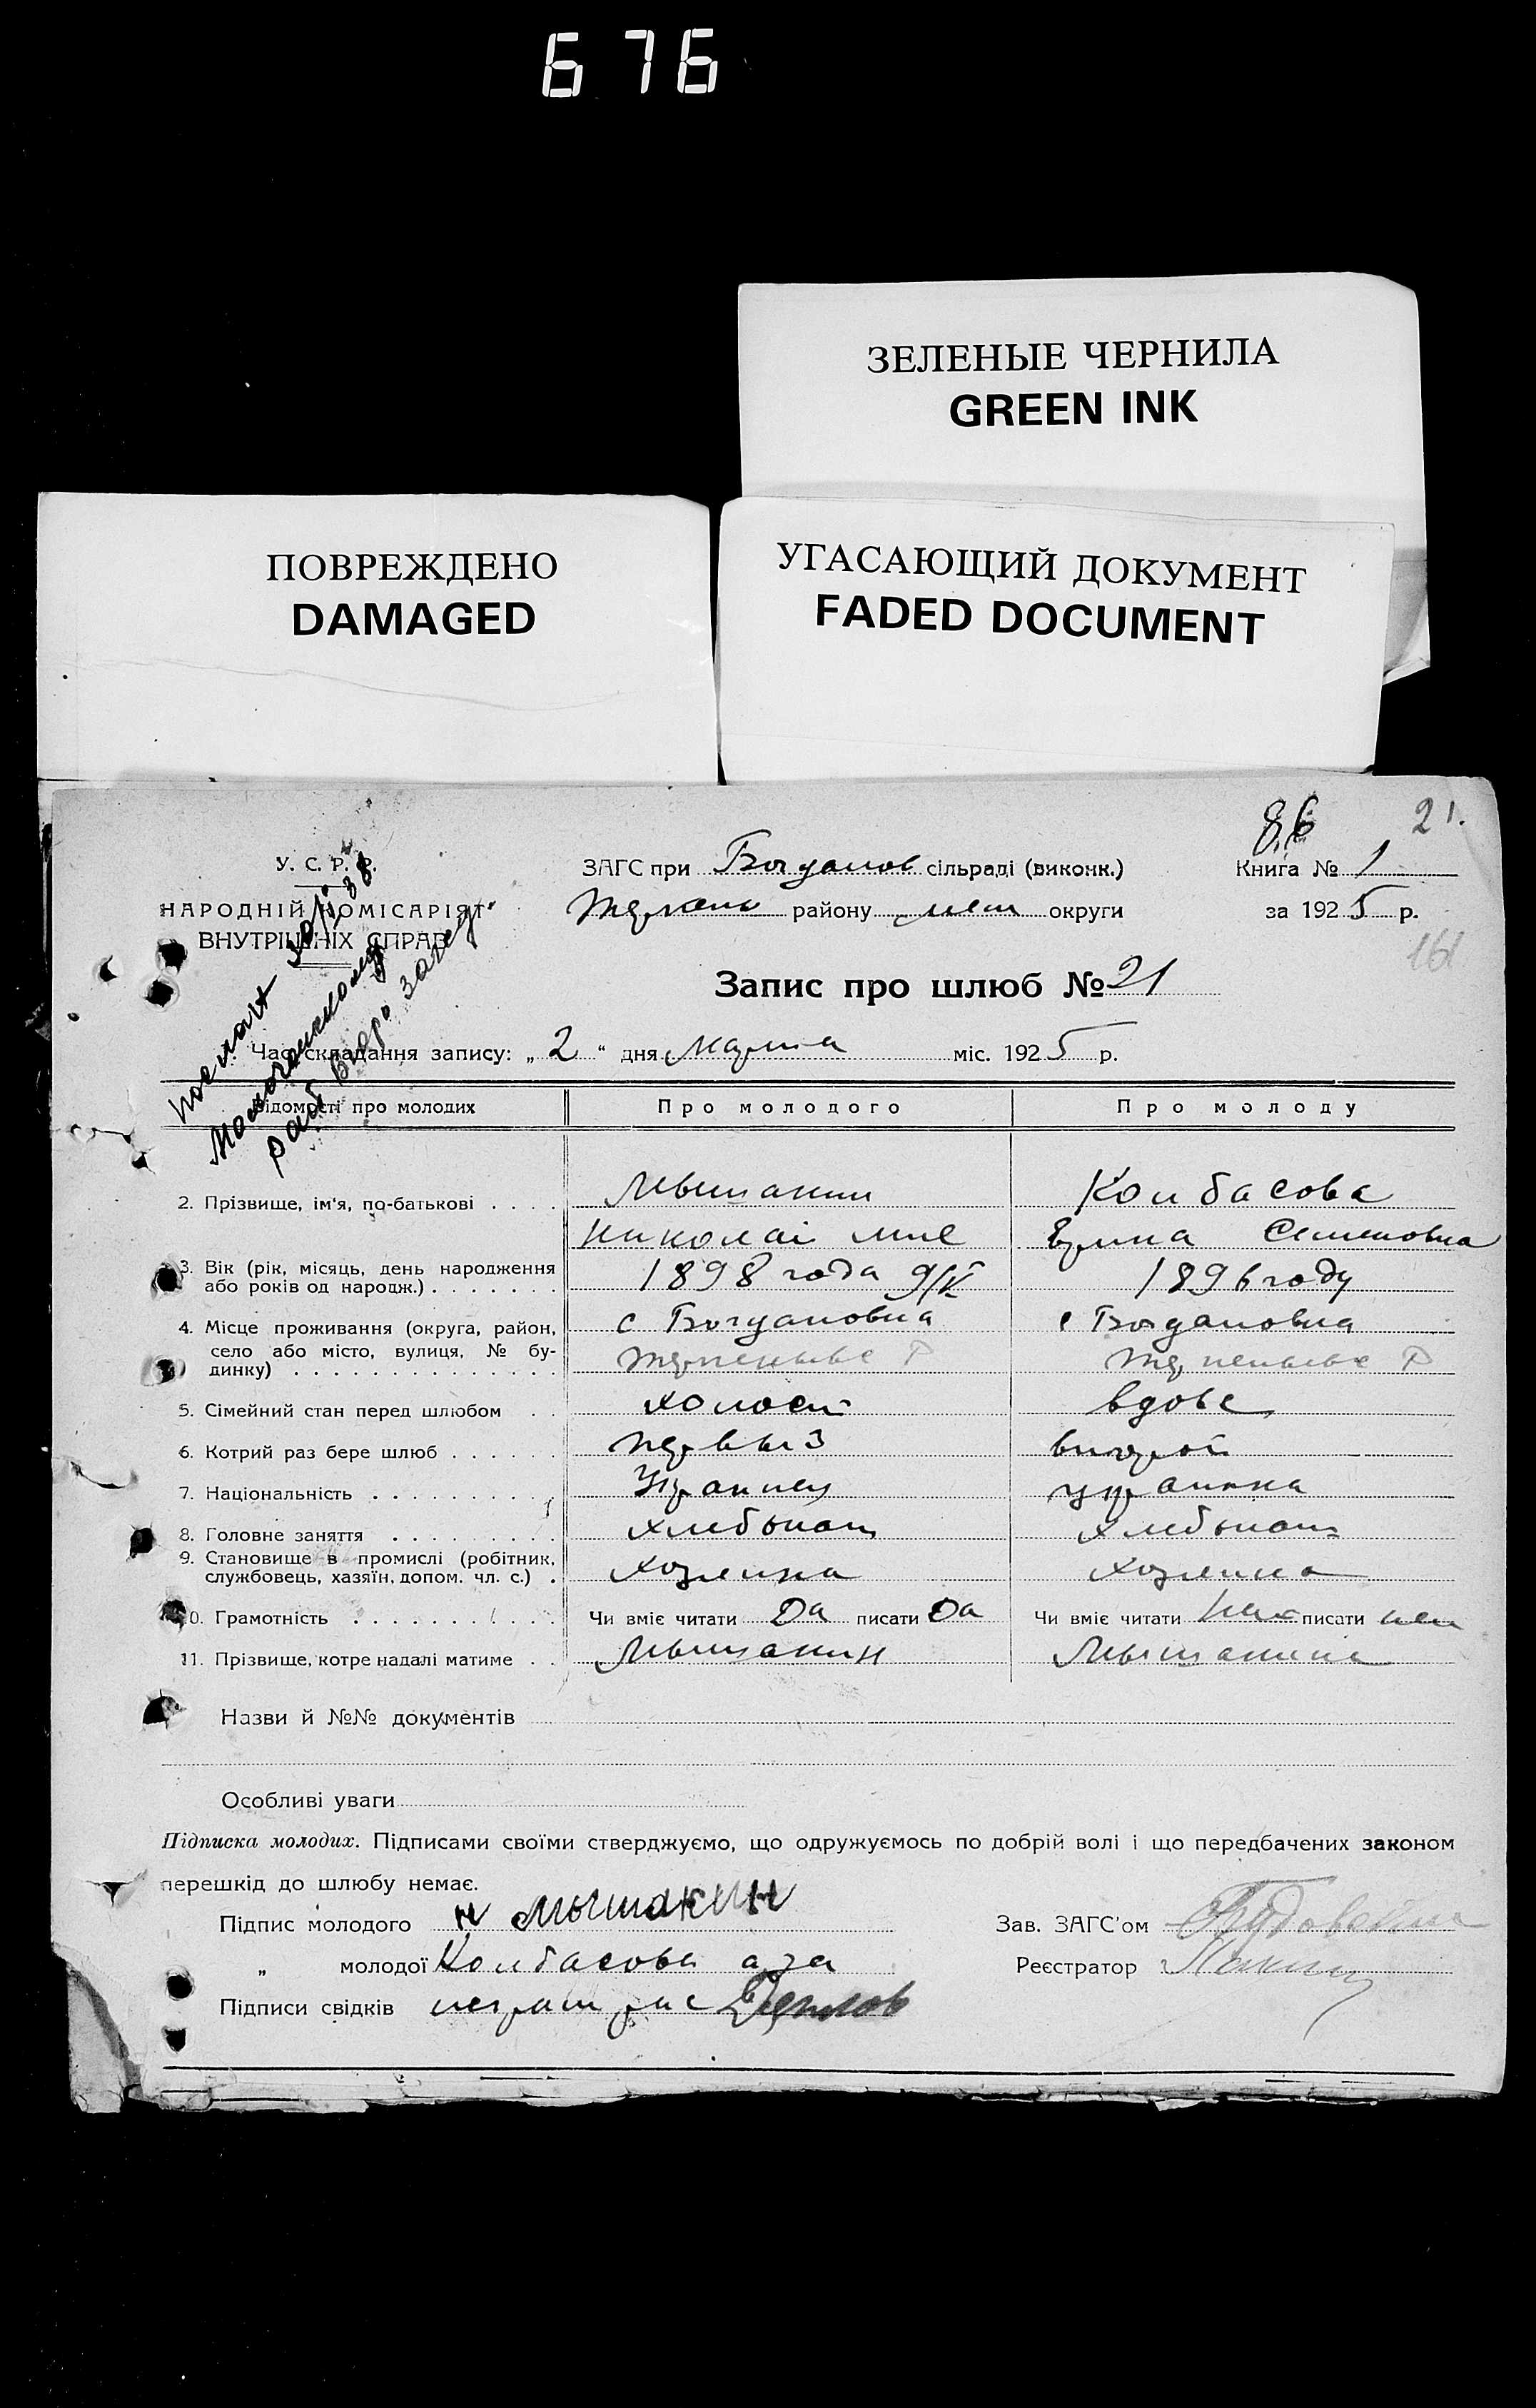 676
ЗЕЛЕНЫЕ ЧЕРНИЛА
GREEN INK
ПОВРЕЖДЕНО
DAMAGED
УГАСАЮЩИЙ ДОКУМЕНТ
FADED DOCUMENT
86
21.
У. С. Р. Р.
НАРОДНІЙ КОМІСАРІЯТ
ВНУТРІШНІХ СПРАВ
ЗАГС при Богданов сільраді (виконк.)
району мел округи
Книга № 1
за 1925 р.
161
Запис про шлюб № 21
Час складання запису: „ 2 “ дня марта міс. 1925 р.
Відомості про молодих
Про молодого
Про молоду
2. Прізвище, ім'я, по-батькові . . . .
Мышакин
Колбасова
Николай
Семеновна
3. Вік (рік, місяць, день народження або років од народж.) . . . . . . .
1898 года 9/IV
1896 году
4. Місце проживання (округа, район, село або місто, вулиця, № будинку) . . . . . . . . . . . . . .
с Богдановка
с Богдановка
Терпеньевс Р
Терпеньевс Р
5. Сімейний стан перед шлюбом . .
холост
вдова
6. Котрий раз бере шлюб . . . . . .
первый
второй
7. Національність . . . . . . . . . .
Украинец
украинка
8. Головне заняття . . . . . . . . .
хлебопаш
хлебопаш
9. Становище в промислі (робітник, службовець, хазяїн, допом. чл. с.) .
хозяина
хозяина
10. Грамотність . . . . . . . . . . .
Чи вміє читати Да писати Да
Чи вміє читати нет писати нет
11. Прізвище, котре надалі матиме . .
Мышакин
Мышакина
Назви й №№ документів
Особливі уваги
Підписка молодих. Підписами своїми стверджуємо, що одружуємось по добрій волі і що передбачених законом
перешкід до шлюбу немає.
Підпис молодого Н Мышакин
„ молодої Колбасова а за
Підписи свідків неграм рас
Зав. ЗАГС'ом
Реєстратор